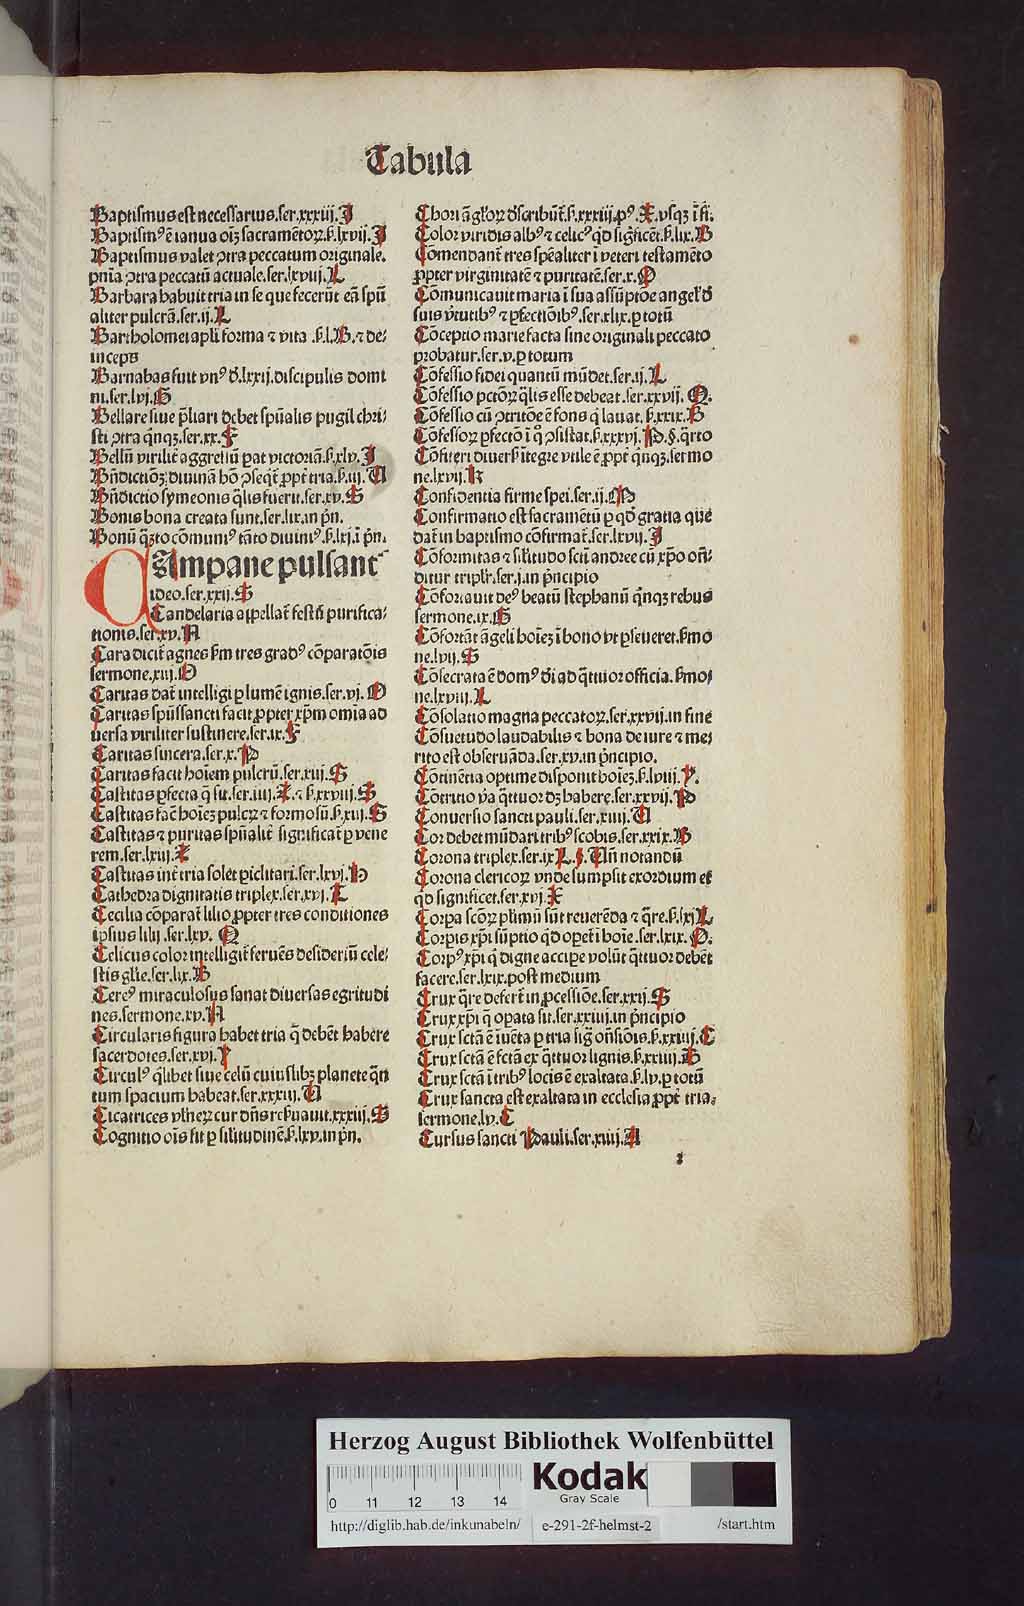 Tabula
Baptismus est necessarius.ser.xxxiij.J
Baptism⁹ ē ianua oīꝫ sacramētoꝝ.ẜ.lxvij.J
Baptismus valet ꝯtra peccatum originale.
pn̄ia ꝯtra peccatū actuale.ser.lxviij.L
Barbara habuit tria in se que fecerūt eā spū
aliter pulcrā.ser.ij.L
Bartholomei apl̄i forma ⁊ vita .ẜ.l.B.⁊ de⸗
inceps
Barnabas fuit vn⁹ d̄.lxxij.discipulis domi
ni.ser.lvj.G
Bellare siue p̄liari debet spūalis pugil chri⸗
sti ꝯtra q̄nqꝫ.ser.xx.F
Bellū virilit̄ aggressū ꝑat victoriā.ẜ.xlv.J
Bn̄dictioꝫ diuinā hō ꝯseqt̄ ꝓpt̄ tria.ẜ.iij.U
Bn̄dictio symeonis q̄lis fuerit.ser.xv.S
Bonis bona creata sunt.ser.lix.in pn̄.
Bonū q̄ꝫto cōmuni⁹ tāto diuini⁹.ẜ.lxj.ī pn̄.
CAmpane pulsant̄
ideo.ser.xxij.S
Candelaria appellat̄ festū purifica⸗
tionis.ser.xv.A
Cara dicit̄ agnes ẜm tres grad⁹ cōparatōis
sermone.xiij.O
Caritas dat̄ intelligi ꝑ lumē ignis.ser.vj.O
Caritas spūssancti facit ꝓpter xp̄m omīa ad
uersa viriliter sustinere.ser.ix.F
Caritas sincera.ser.x.P
Caritas facit hoīem pulcrū.ser.xiij.S
Castitas ꝑfecta q̄ sit.ser.iiij.X.⁊ ẜ.xxviij.S
Castitas fac̄ hoīeꝫ pulcꝝ ⁊ formosū.ẜ.xiij.S
Castitas ⁊ puritas spūalit̄ significat̄ ꝑ vene
rem.ser.lxiij.X
Castitas int̄ tria solet ꝑiclitari.ser.lxvj.H
Cathedra dignitatis triplex.ser.xvj.L
Cecilia cōparat̄ lilio ꝓpter tres conditiones
ipsius lilij .ser.lxv. Q
Celicus color intelligit̄ feruēs desideriū cele⸗
stis gl̄ie.ser.lix.B
Cere⁹ miraculosus sanat diuersas egritudi
nes.sermone.xv.A
Circularis figura habet tria q̄ debēt habere
sacerdotes.ser.xvj.Y
Circul⁹ q̄libet siue celū cuiuslibꝫ planete q̄n
tum spacium habeat.ser.xxxiij.U
Cicatrices vlneꝝ cur dn̄s reẜuauit.xxxiij.S
Cognitio oīs fit ꝑ silitudinē.ẜ.lxv.in pn̄.
Chori āgl̓oꝝ d̓scribūt̄.ẜ.xxxiij.p⁹ X.vsqꝫ ī fi.
Color viridis alb⁹ ⁊ celic⁹ qd̄ sigficēt.ẜ.lix.B
Cōmendant̄ tres spēaliter ī veteri testamēto
ꝓpter virginitatē ⁊ puritatē.ser.x.O
Cōmunicauit maria ī sua assūptōe angel̓ d̓
suis v̓tutib⁹ ⁊ ꝑfectiōib⁹.ser.xlix.ꝑ totū
Cōceptio marie facta sine originali peccato
probatur.ser.v.ꝑ totum
Cōfessio fidei quantū mūdet.ser.ij.L
Cōfessio pctōꝝ q̄lis esse debeat.ser.xxvij. Q.
Cōfessio cū ꝯtritōe ē fons q̄ lauat.ẜ.xxix.B
Cōfessoꝝ ꝑfectō ī q̊ ꝯsistat.ẜ.xxxvj.P.§.q̄rto
Cōfiteri diuerẜ ītegre vtile ē ꝓpt̄ q̄nqꝫ.sermo
ne.lxvij.K
Confidentia firme spei.ser.ij.P
Confirmatio est sacramētū ꝑ qd̄ gratia que
dat̄ in baptismo cōfirmat̄.ser.lxvij.J
Cōformitas ⁊ silitudo scti andree cū xp̄o on̄⸗
ditur triplr̄.ser.j.in pn̄cipio
Cōfortauit de⁹ beatū stephanū q̄nqꝫ rebus
sermone.ix.G
Cōfortāt āgeli hoīeꝫ ī bono vt ꝑseueret.ẜmo
ne.lvij.S
Cōsecrata ē dom⁹ dī ad q̄ttuor officia.ẜmo⸗
ne.lxviij.L
Cōsolatio magna peccatoꝝ.ser.xxvij.in fine
Cōsuetudo laudabilis ⁊ bona de iure ⁊ me⸗
rito est obseruāda.ser.xv.in pn̄cipio.
Cōtinētia optime disponit hoieꝫ.ẜ.lviij.Y.
Cōtritio v̓a q̄ttuor dꝫ habere.ser.xxvij.P
Conuersio sancti pauli.ser.xiiij.U
Cor debet mūdari trib⁹ scobis.ser.xxix.B
Corona triplex.ser.ix L.§.Un̄ notandū
Corona clericoꝝ vnde sumpsit exordium et
qd̄ significet.ser.xvj.X
Corpa scōꝝ plimū sūt reuerēda ⁊ q̄re.ẜ.lxj L
Corpis xp̄i sūptio qd̄ oꝑet̄ ī hoie.ser.lxix.O.
Corp⁹ xp̄i q̄ digne accipe volūt q̄ttuor debēt
facere.ser.lxix.post medium
Crux q̄re defert̄ in ꝓcessiōe.ser.xxij.S
Crux xp̄i q̄ oꝑata sit.ser.xxiiij.in pn̄cipio
Crux sctā ē īuēta ꝑ tria sig̓ on̄siōis.ẜ.xxiiij.C
Crux sctā ē fctā ex q̄ttuor lignis.ẜ.xxiiij.B
Crux sctā ī trib⁹ locis ē exaltata.ẜ.lv.ꝑ totū
Crux sancta est exaltata in ecclesia ꝓpt̄ tria.
sermone.lv.C
Cursus sancti Pauli.ser.xiiij.A
Herzog August Bibliothek Wolfenbüttel
0 11 12 13 14
Kodak
Gray Scale
http://diglib.hab.de/inkunabeln/ e-291-2f-helmst-2 /start.htm